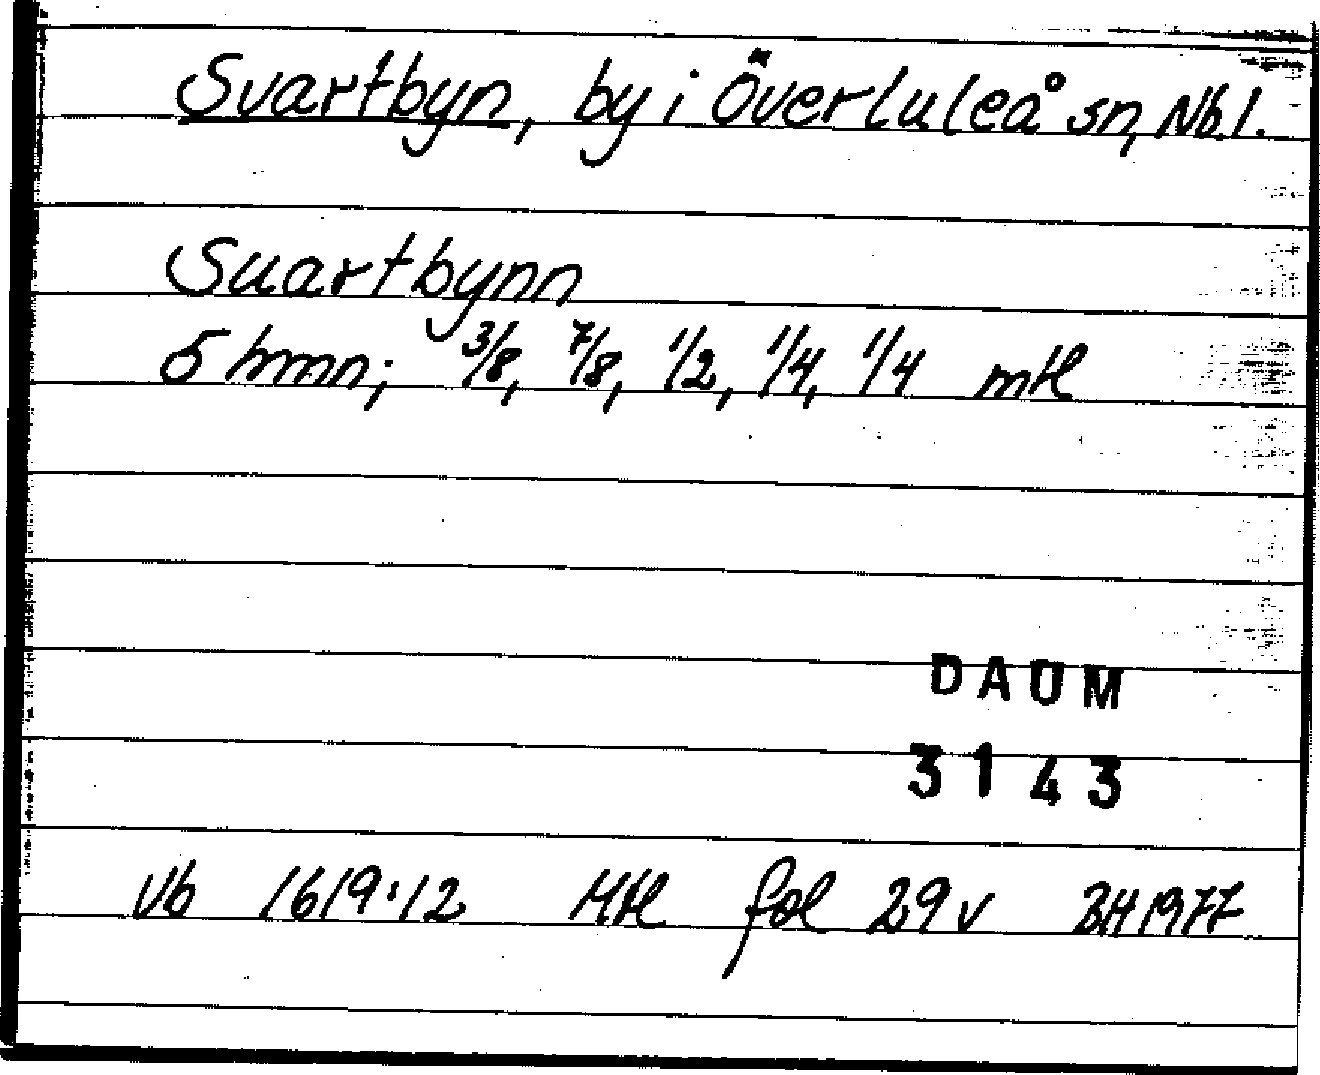 Svartbyn, by i Överluleå sn, Nb.l.
Suartbynn
5 hmn; 3/8, 7/8, 1/2, 1/4, 1/4 mtl
DAUM
3143
Vb 1619:12 Mtl fol 29v BH 1977